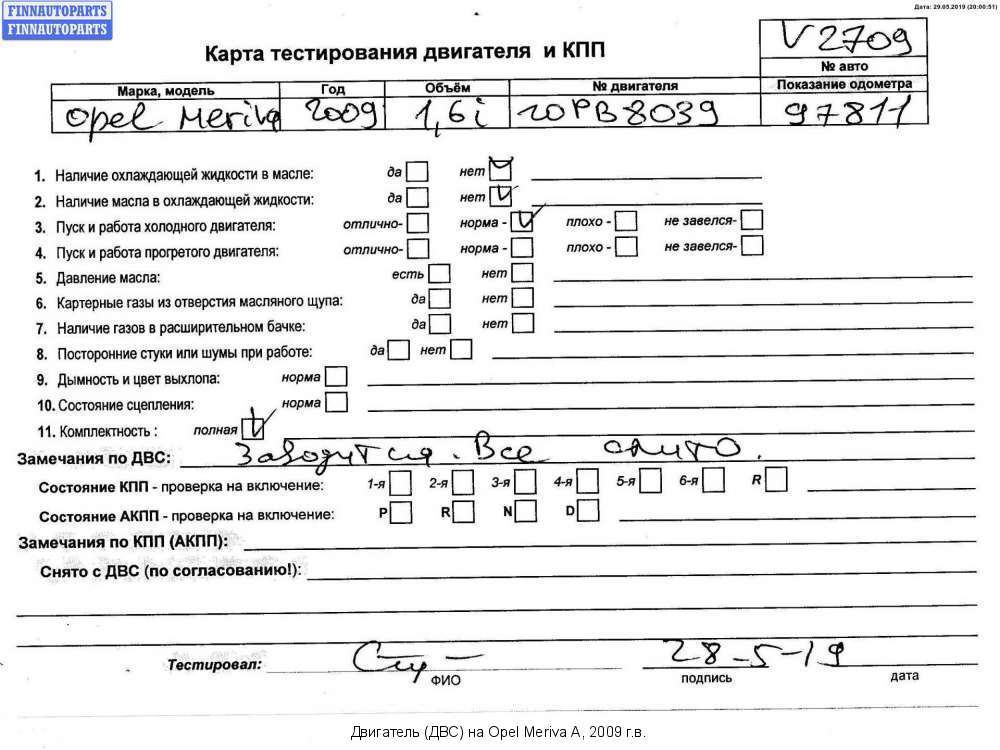 FINNAUTOPARTS
FINNAUTOPARTS
Дата: 29.05.2019 (20:00:51)
Карта тестирования двигателя и КПП
V2709
№ авто
Марка, модель Год Объём № двигателя Показание одометра
Opel Meriva 2009 1,6i 20PB8039 97811
1. Наличие охлаждающей жидкости в масле: да нет
2. Наличие масла в охлаждающей жидкости: да нет
3. Пуск и работа холодного двигателя: отлично- норма - плохо - не завелся-
4. Пуск и работа прогретого двигателя: отлично- норма - плохо - не завелся-
5. Давление масла: есть нет
6. Картерные газы из отверстия масляного щупа: да нет
7. Наличие газов в расширительном бачке: да нет
8. Посторонние стуки или шумы при работе: да нет
9. Дымность и цвет выхлопа: норма
10. Состояние сцепления: норма
11. Комплектность : полная
Замечания по ДВС: Заводится. Все слито.
Состояние КПП - проверка на включение: 1-я 2-я 3-я 4-я 5-я 6-я R
Состояние АКПП - проверка на включение: P R N D
Замечания по КПП (АКПП):
Снято с ДВС (по согласованию!):
Тестировал: 28-5-19
ФИО подпись дата
Двигатель (ДВС) на Opel Meriva A, 2009 г.в.